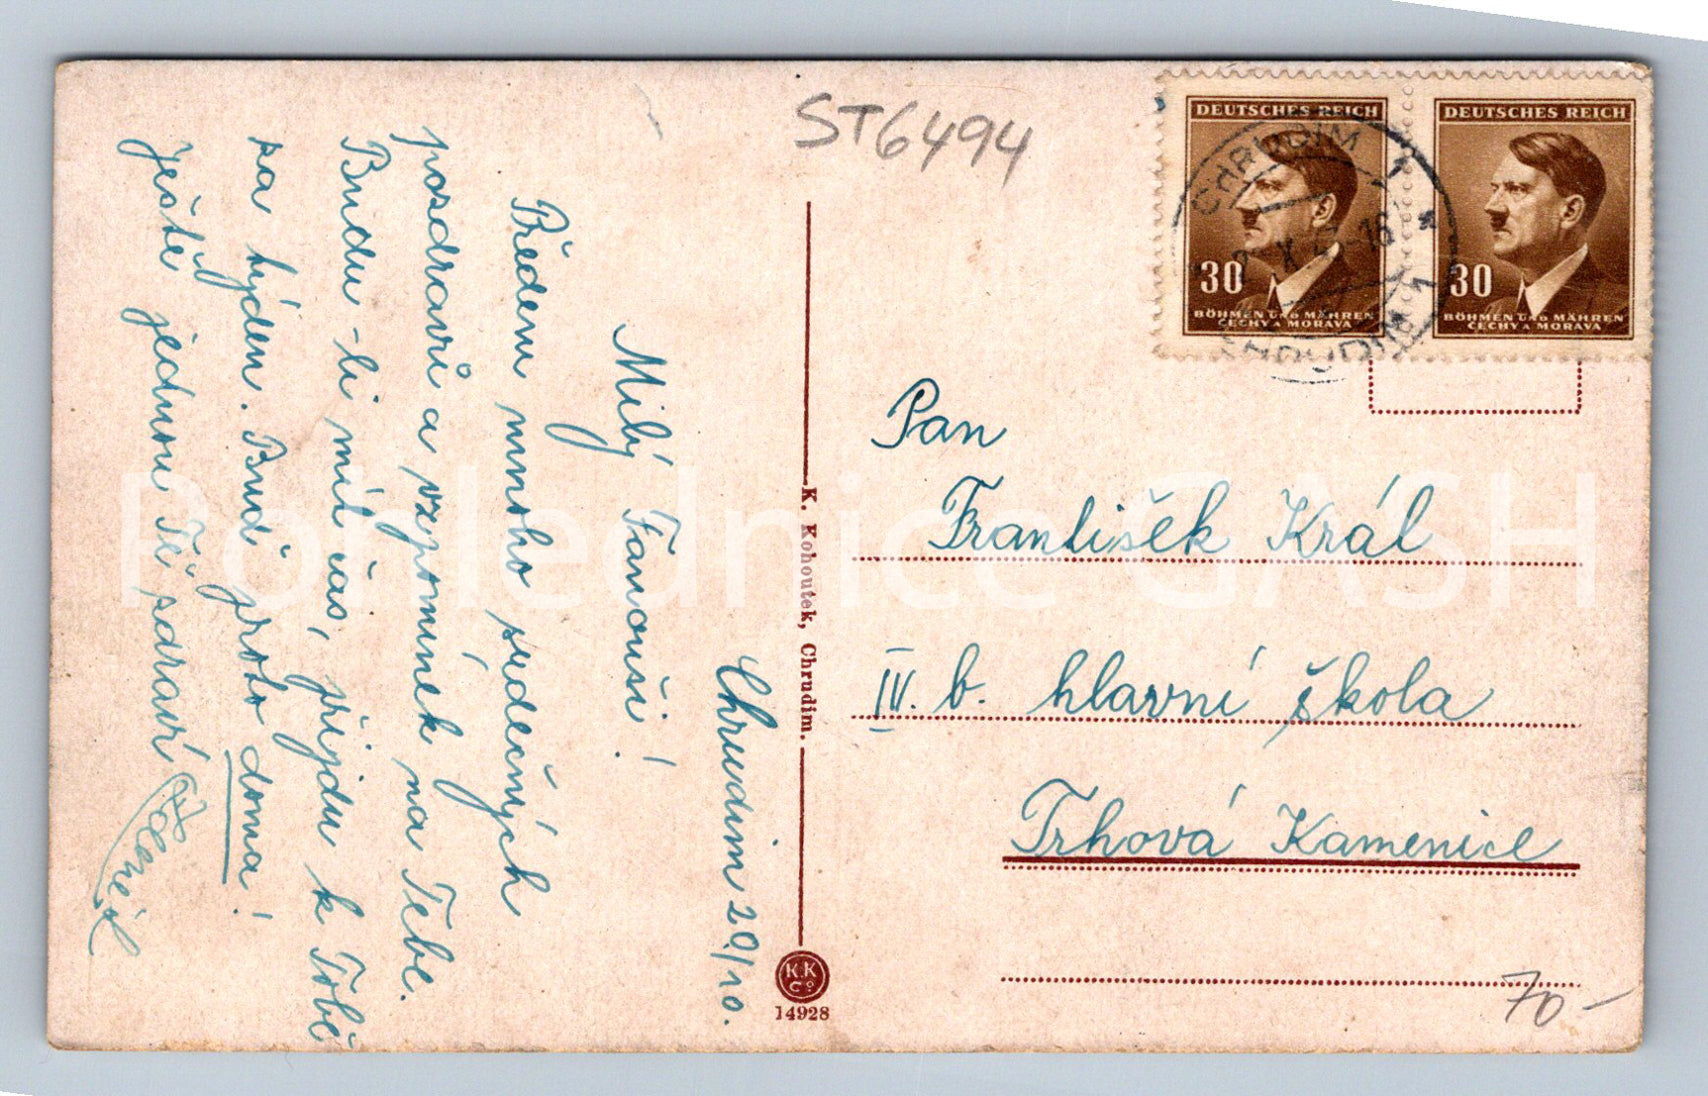 ST6494
DEUTSCHES REICH
30
BÖHMEN UND MÄHREN
ČECHY A MORAVA
DEUTSCHES REICH
30
BÖHMEN UND MÄHREN
ČECHY A MORAVA
CHRUDIM 1
CHRUDIM 1
Chrudim 20/10.
Milý Fanouši!
Předem mnoho srdečných
pozdravů a vzpomínek na Tebe.
Budu-li mít čas, přijdu k Tobě
za týden. Buď proto doma!
Ještě jednou Tě zdraví
K. Kohoutek, Chrudim.
K.K
Cº
14928
Pan
František Král
IV. b. hlavní škola
Trhová Kamenice
70-
Pohlednice GASH